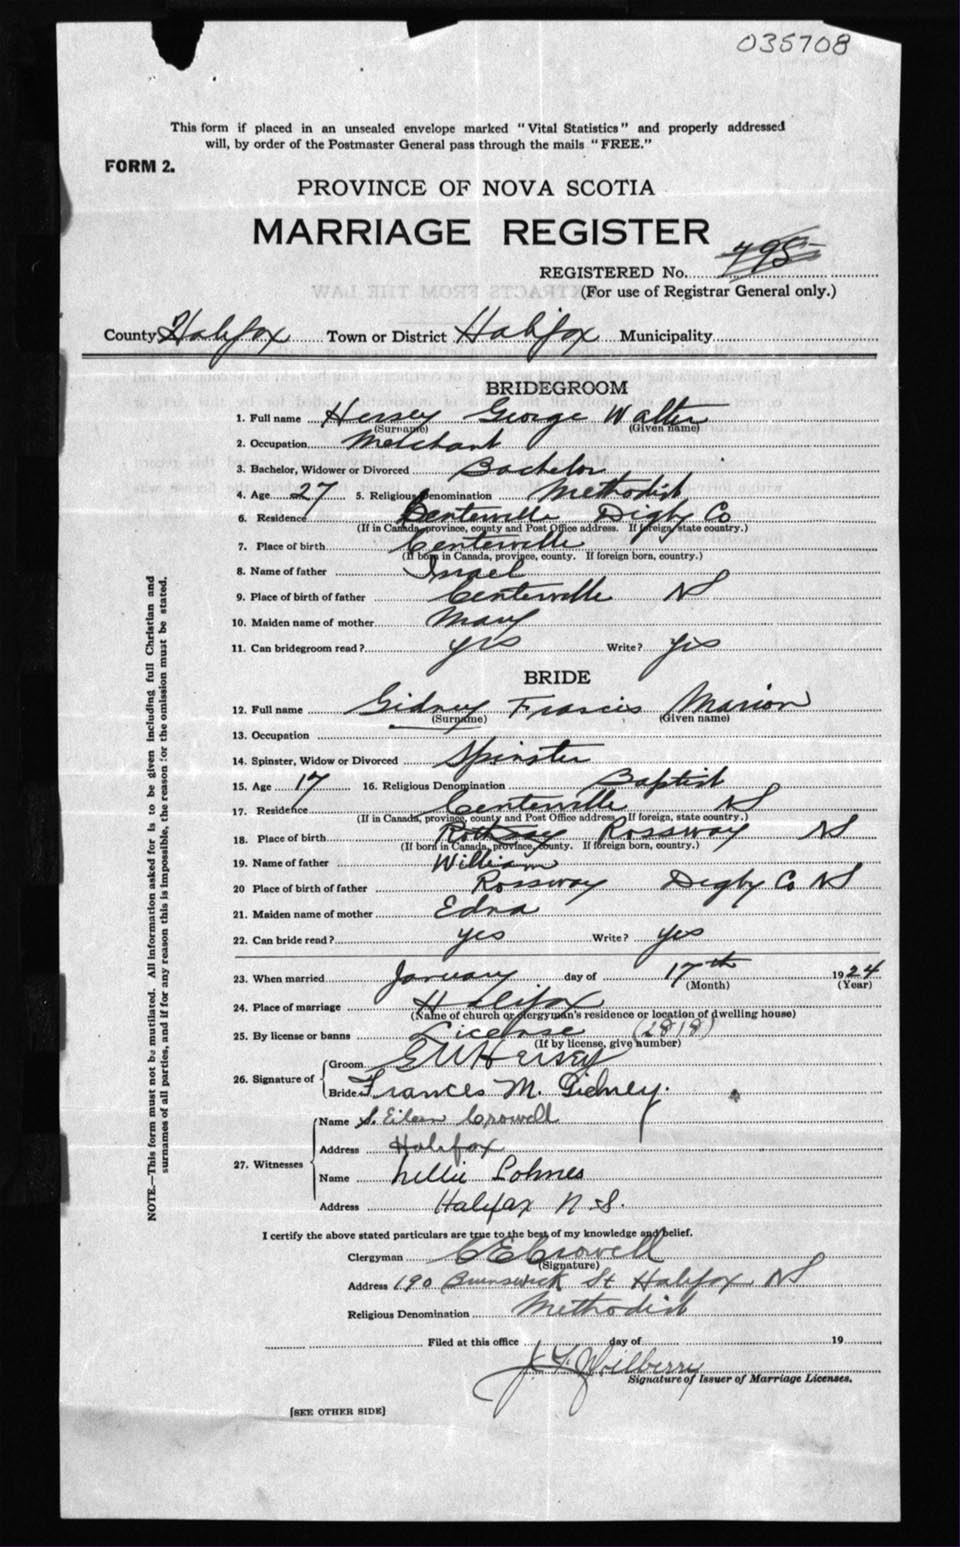 035708
This form if placed in an unsealed envelope marked "Vital Statistics" and properly addressed
will, by order of the Postmaster General pass through the mails "FREE."
FORM 2.
PROVINCE OF NOVA SCOTIA
MARRIAGE REGISTER
REGISTERED No. 495
(For use of Registrar General only.)
County Halifax Town or District Halifax Municipality
BRIDEGROOM
1. Full name Hersey George Walter
(Surname) (Given name)
2. Occupation Merchant
3. Bachelor, Widower or Divorced Bachelor
4. Age 27 5. Religious Denomination Methodist
6. Residence Centerville Digby Co
(If in Canada, province, county and Post Office address. If foreign, state country.)
7. Place of birth Centerville
(If born in Canada, province, county. If foreign born, country.)
8. Name of father Israel
9. Place of birth of father Centerville NS
10. Maiden name of mother Mary
11. Can bridegroom read? yes Write? yes
BRIDE
12. Full name Gidney Francis Marion
(Surname) (Given name)
13. Occupation
14. Spinster, Widow or Divorced Spinster
15. Age 17 16. Religious Denomination Baptist
17. Residence Centerville NS
(If in Canada, province, county and Post Office address. If foreign, state country.)
18. Place of birth Rossway NS
(If born in Canada, province, county. If foreign born, country.)
19. Name of father William
20 Place of birth of father Rossway Digby Co NS
21. Maiden name of mother Edna
22. Can bride read? yes Write? yes
23. When married January day of 17th 1924
(Month) (Year)
24. Place of marriage Halifax
(Name of church or clergyman's residence or location of dwelling house)
25. By license or banns License (2818)
(If by license, give number)
26. Signature of
Groom G W Hersey
Bride Frances M. Gidney.
27. Witnesses
Name S. Eileen Crowell
Address Halifax
Name Nellie Lohnes
Address Halifax N.S.
I certify the above stated particulars are true to the best of my knowledge and belief.
Clergyman C E Crowell
(Signature)
Address 190 Brunswick St Halifax NS
Religious Denomination Methodist
Filed at this office day of 19
Signature of Issuer of Marriage Licenses.
[SEE OTHER SIDE]
NOTE.—This form must not be mutilated. All information asked for is to be given including full Christian and
surnames of all parties, and if for any reason this is impossible, the reason for the omission must be stated.